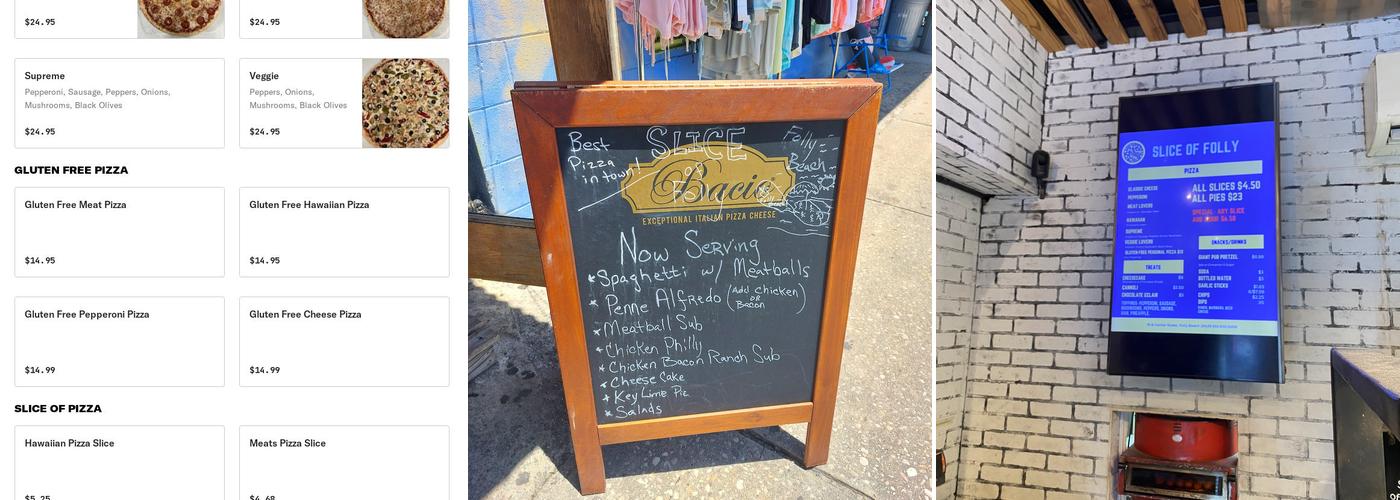 $24.95
$24.95
Supreme
Pepperoni, Sausage, Peppers, Onions,
Mushrooms, Black Olives
$24.95
Veggie
Peppers, Onions,
Mushrooms, Black Olives
$24.95
GLUTEN FREE PIZZA
Gluten Free Meat Pizza
$14.95
Gluten Free Hawaiian Pizza
$14.95
Gluten Free Pepperoni Pizza
$14.99
Gluten Free Cheese Pizza
$14.99
SLICE OF PIZZA
Hawaiian Pizza Slice
$5.25
Meats Pizza Slice
$4.68
Best
Pizza
in town!
SLICE
OF
Folly
Beach
Bacio
EXCEPTIONAL ITALIAN PIZZA CHEESE
Now Serving
* Spaghetti w/ Meatballs
* Penne Alfredo (Add Chicken
OR
Bacon)
* Meatball Sub
* Chicken Philly
* Chicken Bacon Ranch Sub
* Cheese Cake
* Key Lime Pie
* Salads
SLICE OF FOLLY
PIZZA
CLASSIC CHEESE
PEPPERONI
MEAT LOVERS
HAWAIIAN
SUPREME
VEGGIE LOVERS
GLUTEN FREE PERSONAL PIZZA
ALL SLICES $4.50
ALL PIES $23
SPECIAL: ANY SLICE
TREATS
CHEESECAKE
CANNOLI
CHOCOLATE ECLAIR
TOPPINGS: PEPPERONI, SAUSAGE,
MUSHROOMS, PEPPERS, ONIONS,
HAM, PINEAPPLE,
SNACKS/DRINKS
GIANT PUB PRETZEL
SODA
BOTTLED WATER
GARLIC STICKS
CHIPS
DIPS